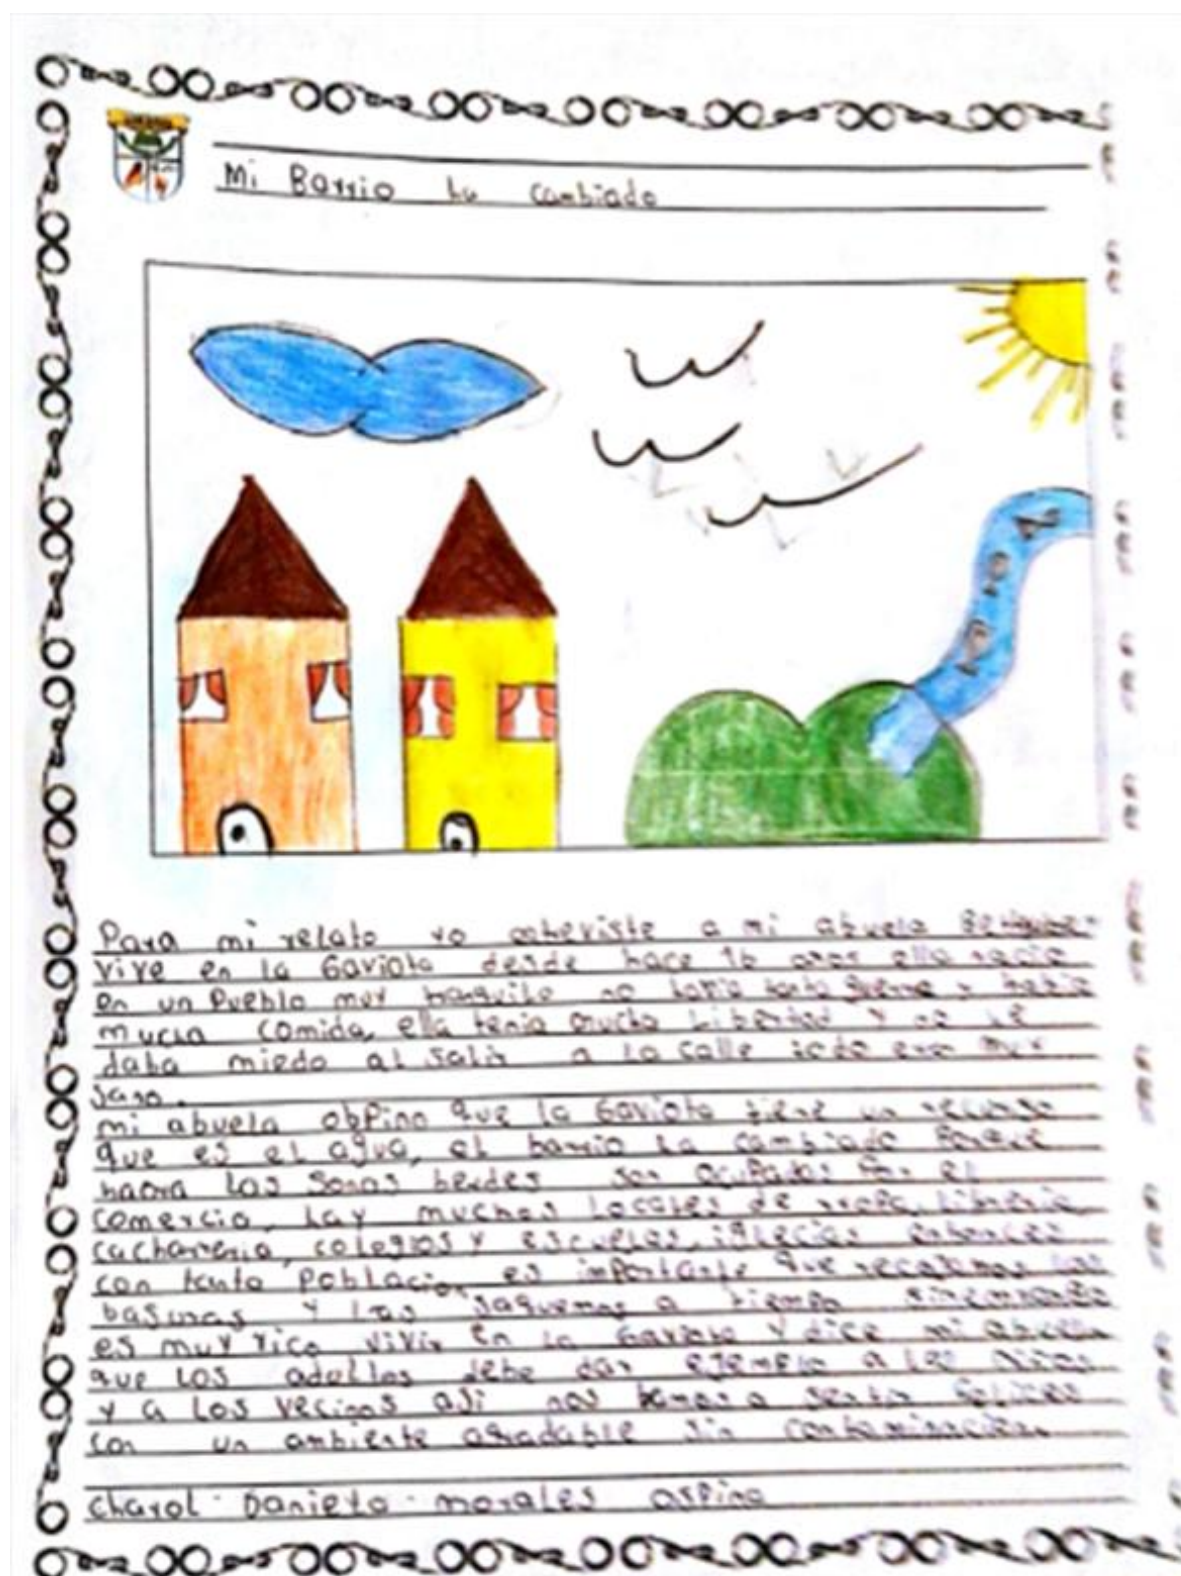 Mi Barrio ha cambiado
Para mi relato yo entreviste a mi abuela
vive en la Gaviota desde hace 16 años ella nacio
en un Pueblo muy tranquilo no había tanta guerra y había
mucha comida, ella tenia mucha Libertad y no le
daba miedo al salir a la calle todo era muy
sano.
mi abuela obPina que la Gaviota tiene un recurso
que es el agua, el barrio ha cambiado Porque
haora las sonas berdes son ocupadas Por el
comercio, hay muchos Locales de ropa, Libreria,
cacharreria, colegios y escuelas, iglecias entonces
con tanta Poblacion es importante que recojamos las
basuras y las saquemos a tiempo
es muy rico vivir en la Gaviota y dice mi abuela
que los adultos debe dar ejemplo a los niños
y a los vecinos asi nos bamos a sentir felices
con un ambiente agradable sin contaminacion.
Charol Daniela morales ospina